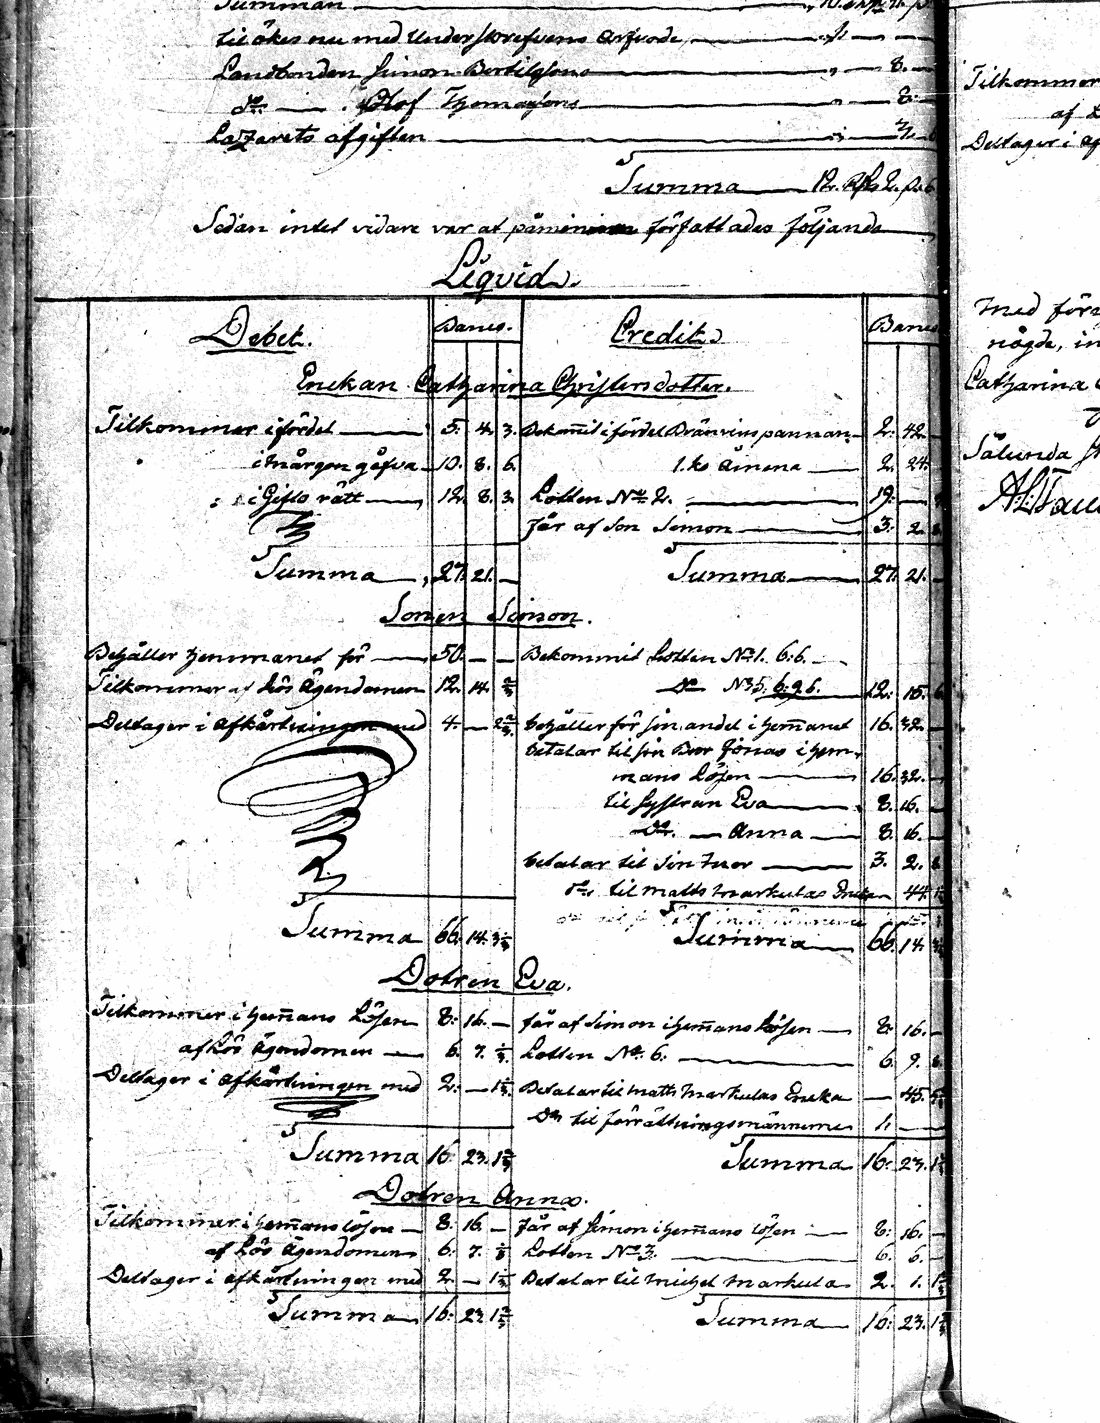 Summan
til ökes nu med Underskrefvens Arfvode
Landbonden Simon Bertilssons 8.
do Olof Thomassons 8.
Lazarets afgiften
Summa 12.
Sedan intet vidare var at påminna författades följande
Liqvid.
Debet. Banco. Credit. Banco
Enckan Catharina Christersdotter.
Tilkommer i fördel 5. 4. 3. Bekommit i fördel Bränvins pannan 2. 42.
i Morgongåfva 10. 8. 6. 1. ko Ämena 2. 24.
i Gifto rätt 12. 8. 3. Lotten No 2. 19.
får af Son Simon 3. 2.
Summa 27. 21. — Summa 27. 21.
Sonen Simon.
Behåller hemmanet för 50. — — Bekommit Lotten No 1. 6:6.
Tilkommer af Lös Ägendomen 12. 14. 2/3 Do No 5. 6:9 6. 12. 15. 6
Deltager i afkårtningen med 4. — 2 2/3 behåller för sin andel i hemanet 16. 32.
betalar til sin Bror Jonas i hem-
mans Lösen 16. 32.
til Systran Eva 8. 16.
Do. — Anna 8. 16.
betalar til Sin Mor 3. 2.
do. til Matts Markulas Encka 44.
Summa 66. 14. 3 1/3 Summa 66. 14.
Dotren Eva.
Tilkommer i hemans Lösen 8. 16. — får af Simon i hemans Lösen 8. 16. —
af Lös Ägendomen 6. 7. 1/3 Lotten No. 6. 6. 9.
Deltager i afkårtningen med 2. — 1 1/3 Betalar til Matts Markulas Encka — 45.
Do til förrättningsmännerne 1. —
Summa 16. 23. 1 2/3 Summa 16. 23.
Dotren Anna.
Tilkommer i hemans lösen 8. 16. — får af Simon i hemans lösen 8. 16.
af Lös Ägendomen 6. 7. 1/3 Lotten No 3. 6. 6.
Deltager i afkårtningen med 2. — 1 1/3 Betalar til Michel Markula 2. 1.
Summa 16. 23. 1 2/3 Summa 16. 23.
Tilkommer
af
Deltager i
Med
nögde, in
Catharina
Sålunda